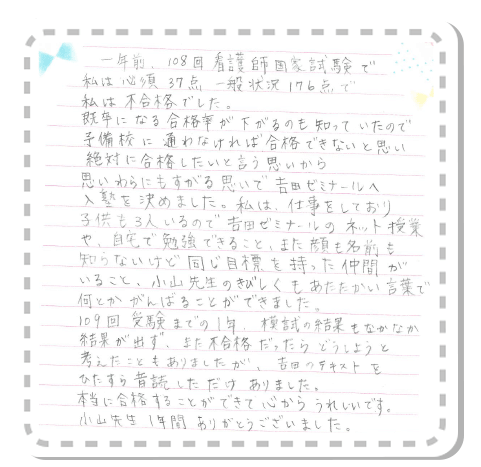 一年前、108回看護師国家試験で
私は必須37点 一般状況176点で
私は不合格でした。
既卒になる合格率が下がるのも知っていたので
予備校に通わなければ合格できないと思い
絶対に合格したいと言う思いから
思いわらにもすがる思いで吉田ゼミナールへ
入塾を決めました。私は、仕事をしており
子供も3人いるので吉田ゼミナールのネット授業
や、自宅で勉強できること、また顔も名前も
知らないけど同じ目標を持った仲間が
いること、小山先生のきびしくもあたたかい言葉で
何とかがんばることができました。
109回受験までの1年、模試の結果もなかなか
結果が出ず、また不合格だったらどうしようと
考えたこともありましたが、吉田のテキストを
ひたすら音読しただけありました。
本当に合格することができて心からうれしいです。
小山先生1年間ありがとうございました。